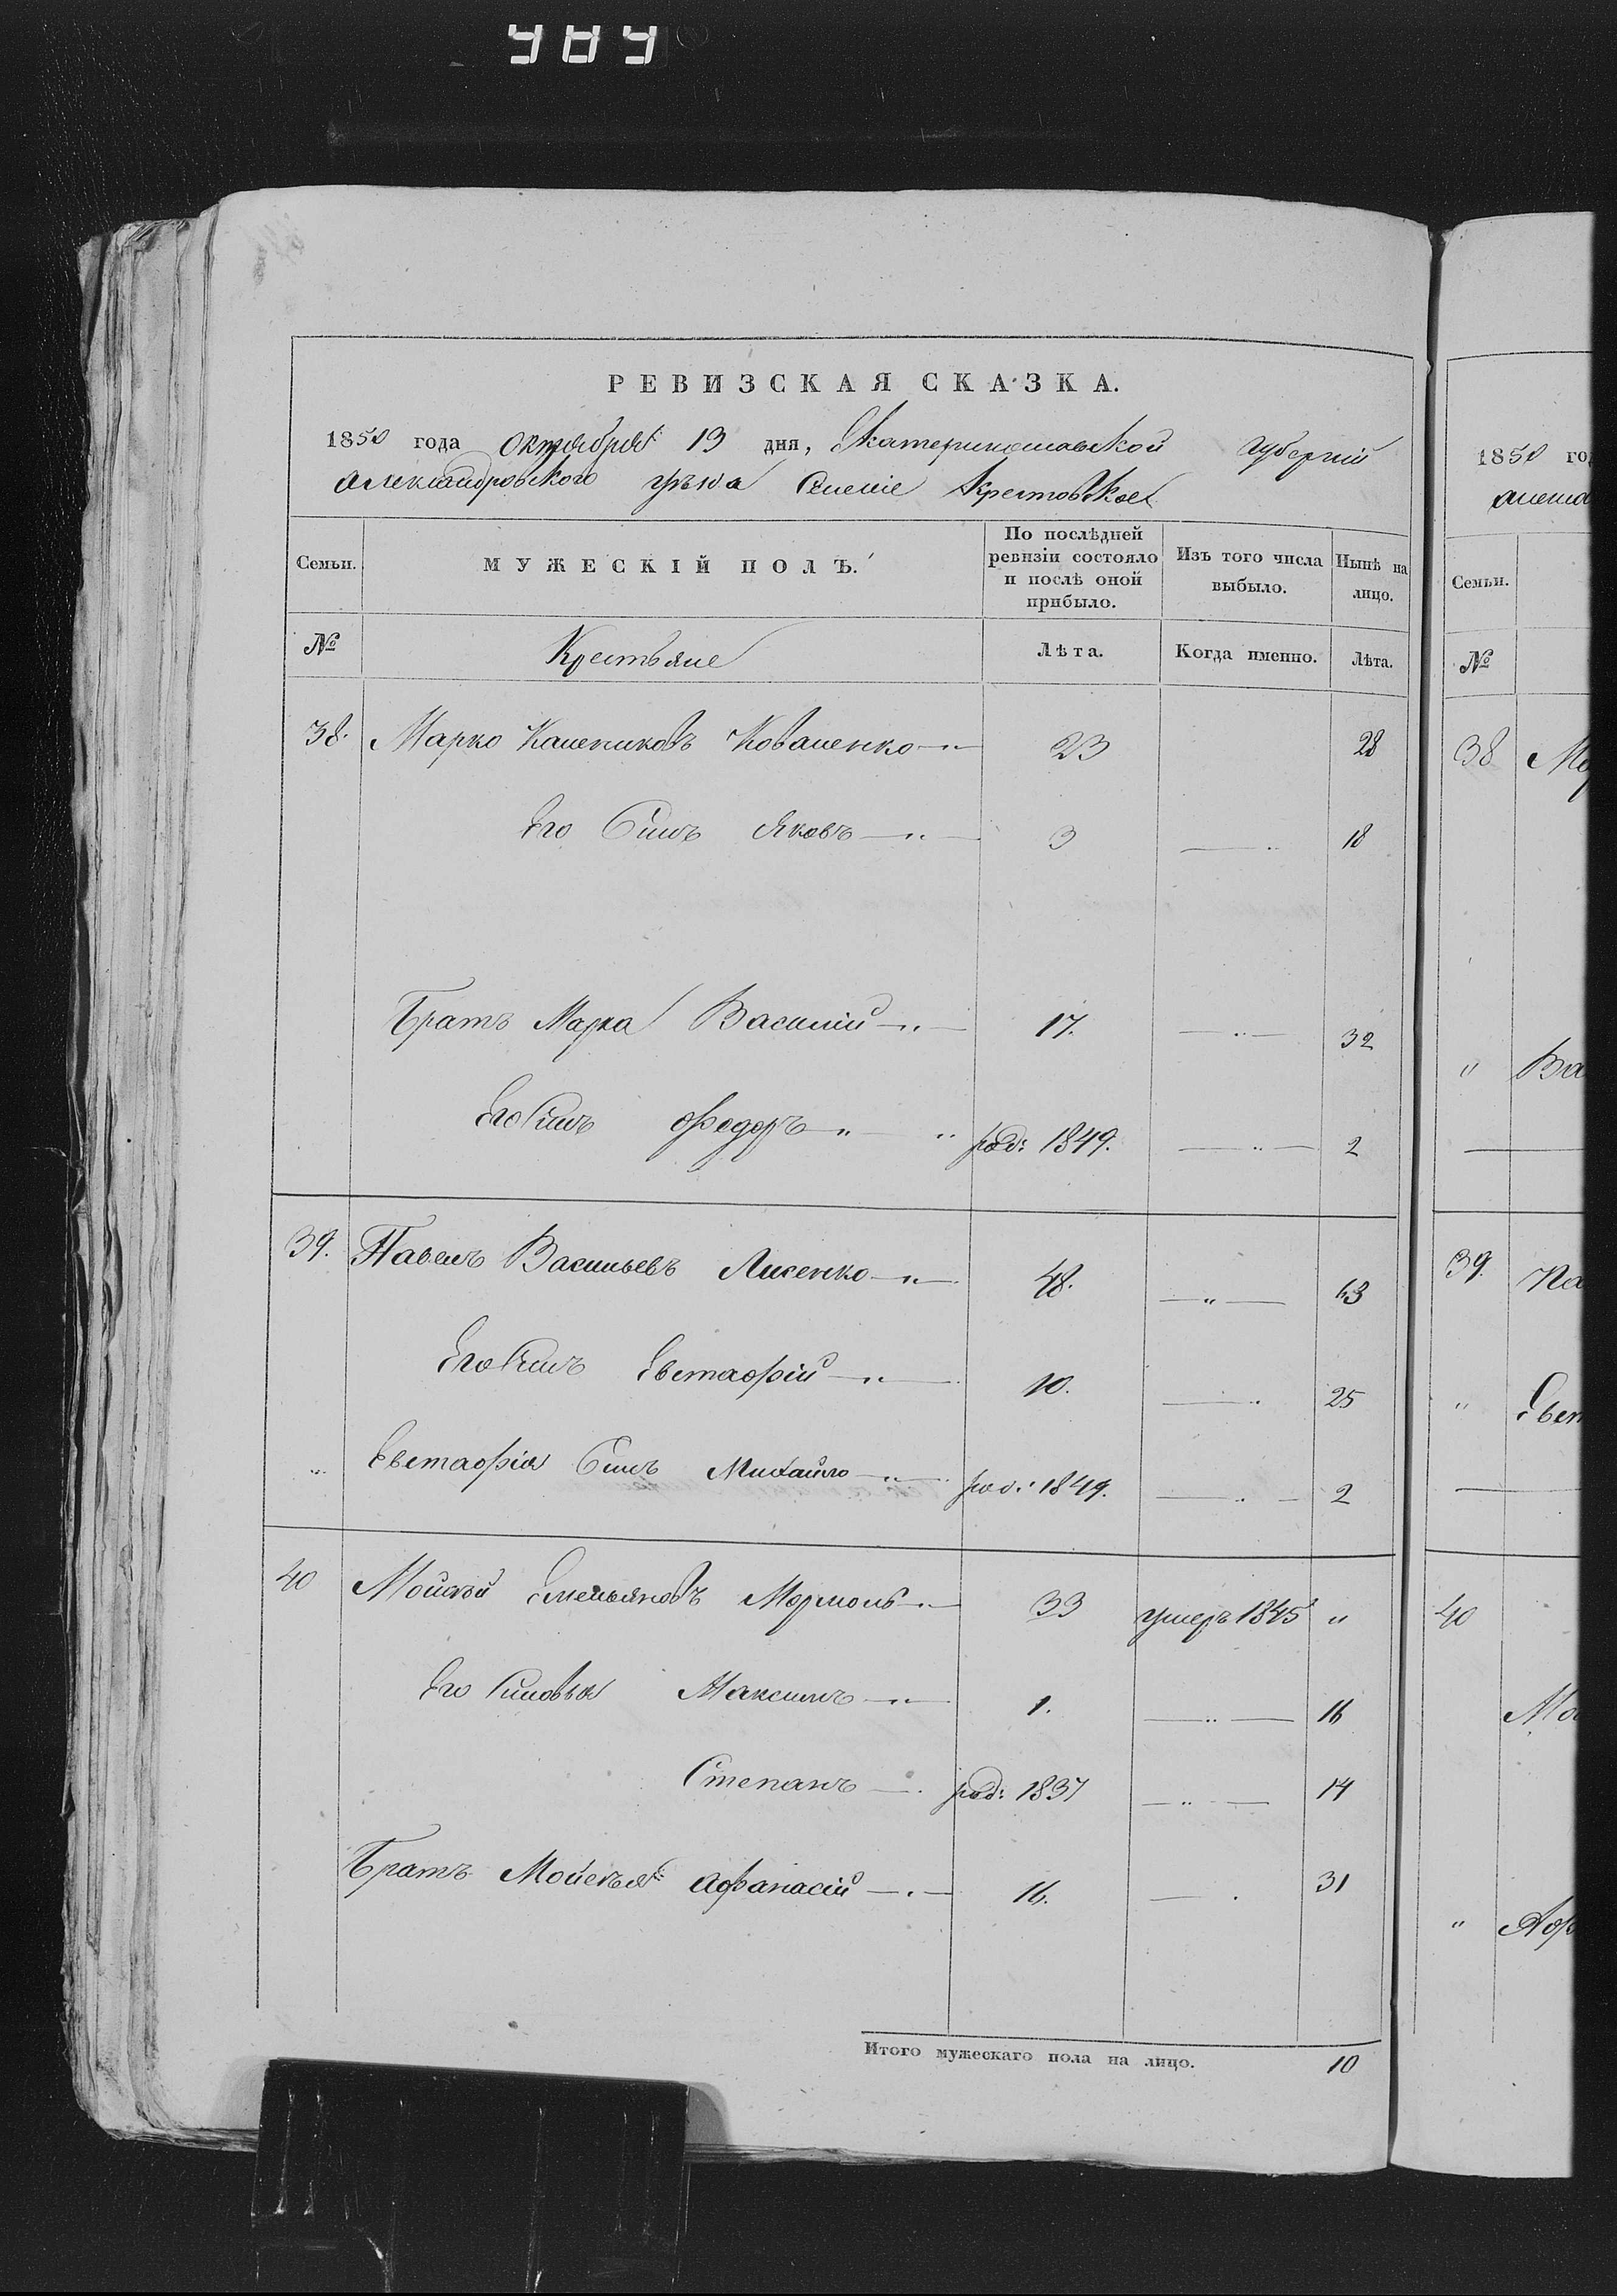 РЕВИЗСКАЯ СКАЗКА.
1850 года Октября 13 дня, Екатеринославской губерніи
Александровского уѣзда Селеніе Крестовское
Семьи. МУЖЕСКІЙ ПОЛЪ. По послѣдней ревизіи состояло и послѣ оной прибыло. Изъ того числа выбыло. Нынѣ на лицо.
№ Крестьяне Лѣта. Когда именно. Лѣта.
38. Марко Калениковъ Коваленко 23 28
Его Синъ Яковъ 3 18
Братъ Марка Василій 17. 32
Его Синъ Федоръ род: 1849. 2
39. Павелъ Васильевъ Лисенко 48. 63
Его Синъ Евстафій 10. 25
Евстафія Синъ Михайло род: 1849. 2
40 Мойсѣй Емельяновъ 33 умеръ 1845
Его Синовья Максимъ 1. 16
Степанъ род: 1837 14
Братъ Мойсѣя Афанасій 16. 31
Итого мужескаго пола на лицо. 10
1850 го
Семьи.
№
38
" Ва
39. Па
" Евст
40
Мо
" Аф